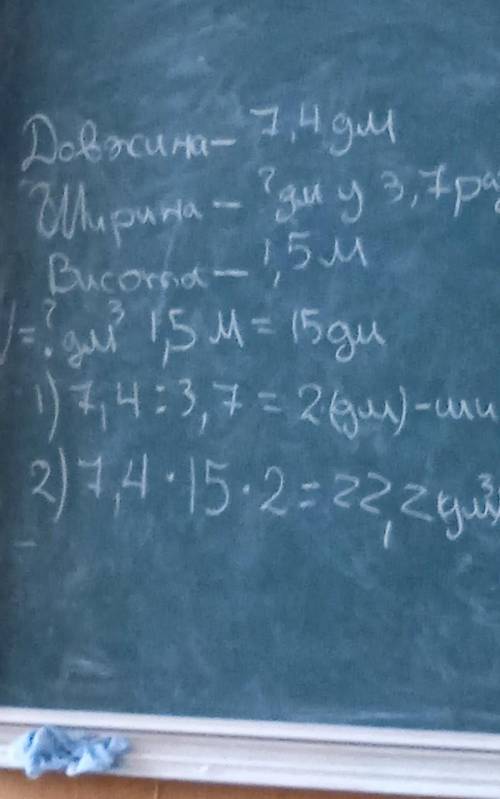 Довжина – 7,4 дм
Ширина – ? дм у 3,7 раз
Висота – 1,5 м
V = ? дм³ 1,5 м = 15 дм
1) 7,4 : 3,7 = 2 (дм) – ши
2) 7,4 · 15 · 2 = 22,2 дм³